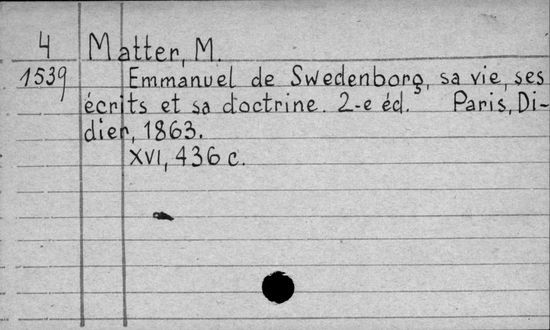 4 Matter, M.
1539 Emmanuel de Swedenborg, sa vie, ses
écrits et sa doctrine. 2-e éd. Paris, Di-
dier, 1863.
XVI, 436 c.